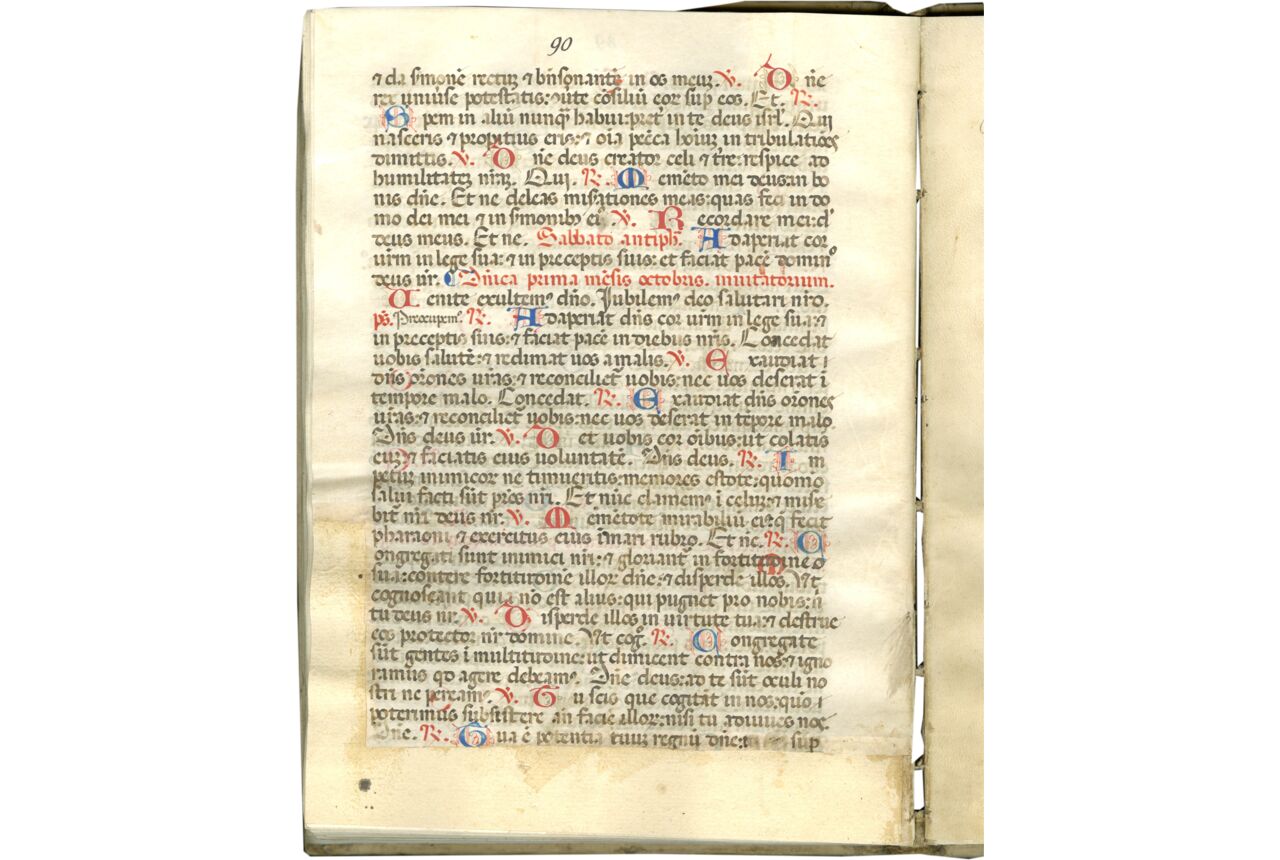 90
⁊ da s̃moñe rectuz ⁊ bñsonantẽ in os meuz. ℣. D ñe
rex uniũse potestatis: ̃ũte cõsiliũ cor sup eos. Et. ℟.
S pem in aliũ nunq̃ habui: pret̃ in te deus isrl̃. Qui
nasceris ⁊ propitius eris: ⁊ oĩa pecc̃a hoĩuz in tribulatiõe
dimittis. ℣. D ñe deus creator celi ⁊ tr̃e: respice ad
humilitatez nr̃az. Qui. ℟. M emẽto mei deus in bo
nis dñe. Et ne deleas mis̃ationes meas: quas feci in do
mo dei mei ⁊ in s̃monib⁹ ei⁹ ℣. R ecordare mei: d̃
deus meus. Et ne. Sabbato antiph̃. A daperiat cor
ur̃m in lege sua: ⁊ in preceptis suis: et faciat pacẽ domin⁹
deus nr̃. Dñica prima mẽsis octobris. inuitatorium.
U enite exultem⁹ dño. Jubilem⁹ deo salutari nr̃o.
ps̃. Preocupem⁹. ℟. A daperiat dñs cor ur̃m in lege sua: ⁊
in preceptis suis: ⁊ faciat pacẽ in diebus nr̃is. Concedat
uobis salutẽ: ⁊ redimat uos a malis. ℣. E xaudiat
dñs or̃ones ur̃as: ⁊ reconciliet̃ uobis: nec uos deserat ĩ
tempore malo. Concedat. ℟. E xaudiat dñs or̃ones
ur̃as: ⁊ reconciliet̃ uobis: nec uos deserat in tẽpore malo.
Dñs deus ur̃. ℣. D et uobis cor oĩbus: ut colatis
euz: ⁊ faciatis eius uoluntatẽ. Dñs deus. ℟. I m
petuz inimicor ne timueritis: memores estote: quomo
salui facti sũt pr̃es nr̃i. Et nũc clamem⁹ ĩ celuz: ⁊ mise
bit̃ nr̃i deus nr̃. ℣. M emẽtote mirabiliũ ei⁹: q̃ fecit
pharaoni ⁊ exercitus eius ĩ mari rubro. Et ñc. ℟. C
ongregati sunt inimici nr̃i: ⁊ gloriant̃ in fortitudine
sua: contere fortitudinẽ illor dñe: ⁊ disperde illos. Ut
cognoscant quia no est alius: qui pugnet pro nobis: ñ
tu deus nr̃. ℣. D isperde illos in uirtute tua: ⁊ destrue
eos protector nr̃ domine. Ut cog̃. ℟. C ongregate
sũt gentes ĩ multitudine: ut dimicent contra nos: ⁊ igno
ramus qd̃ agere debeam⁹. Dñe deus: ad te sũt oculi no
stri ne peream⁹. ℣. T u scis que cogitãt in nos: quõ
poterimus subsistere añ faciẽ illor: nisi tu adiuues nos.
Dñe. ℟. T ua ẽ potentia tuuz regnũ dñe: tu sup